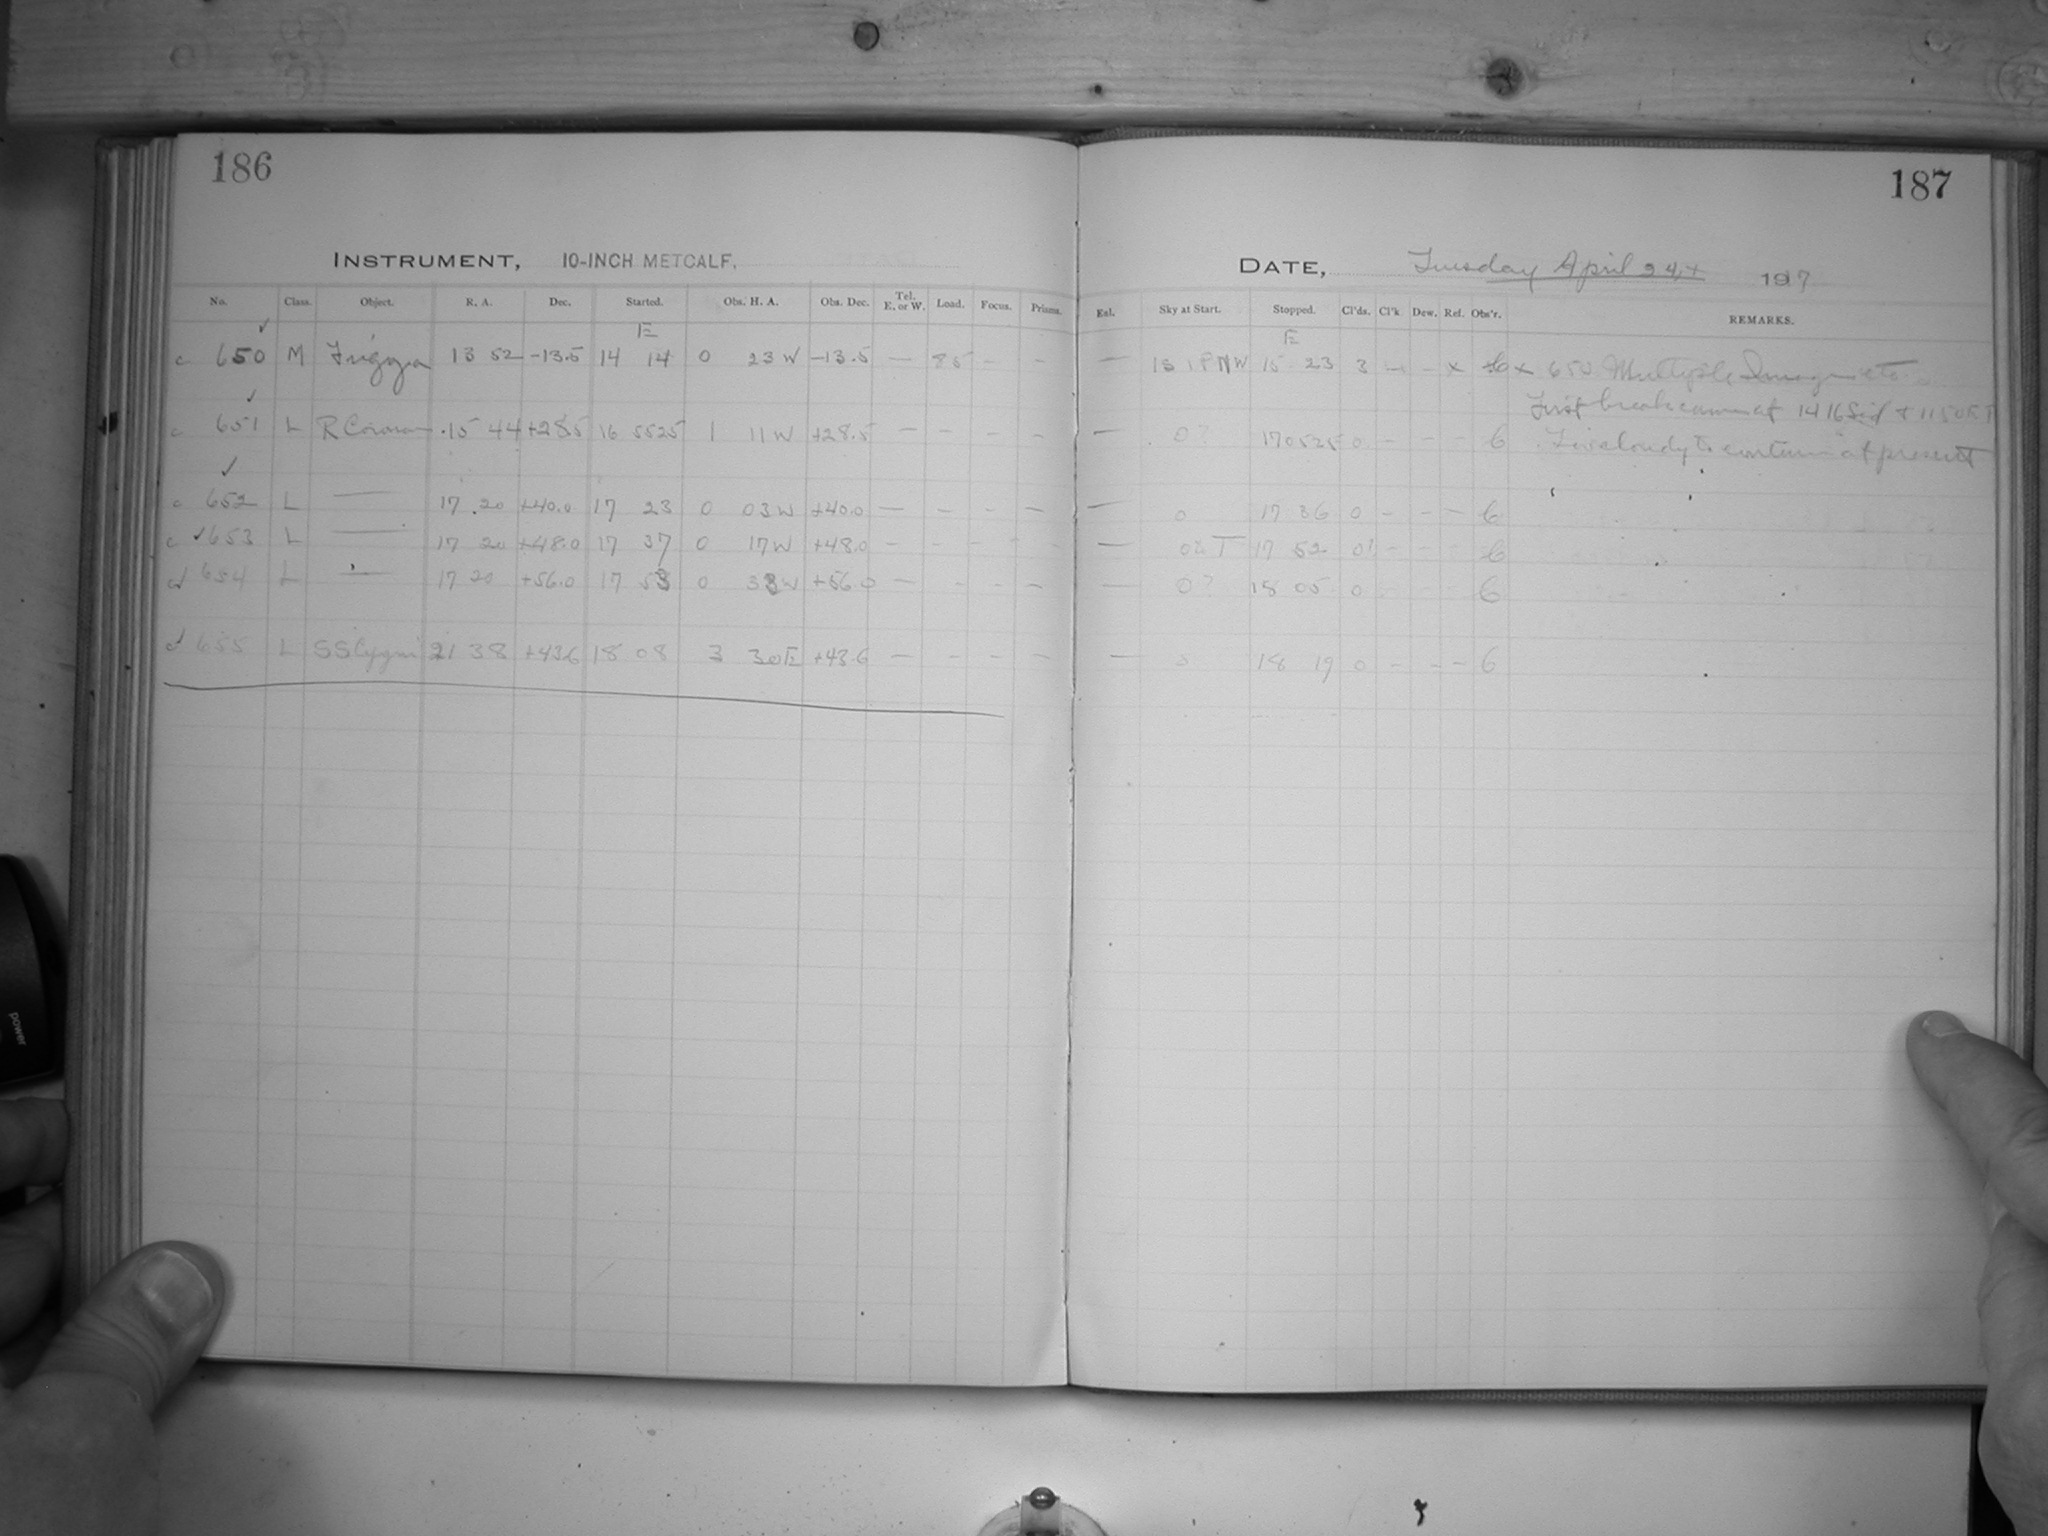 186
187
INSTRUMENT, 10-INCH METCALF.
DATE, Tuesday April 24, 1917
No. Class. Object. R. A. Dec. Started. Obs. H. A. Obs. Dec. Tel. E. or W. Load. Focus. Prisms. Eal. Sky at Start. Stopped. Cl'ds. Cl'k Dew. Ref. Obs'r. REMARKS.
E E
c 650 M Frigga 13 52 -13.5 14 14 0 23 W -13.5 — 85 - - — 15 23 3 - x 6 x 650 Multiple Images etc
First break came at 1416 Sid
c 651 L R Coronae 15 44 +28.5 16 5525 1 11 W +28.5 — - - - — 0? 170525 0 - - - 6 Too cloudy to continue at present
c 652 L — 17 20 +40.0 17 23 0 03 W +40.0 — - - - — 0 17 36 0 - - - 6
c 653 L — 17 20 +48.0 17 37 0 17 W +48.0 — - - - — 17 52 0? - - 6
654 L — 17 20 +56.0 17 53 0 33 W +56.0 — - - - — 0? 18 05 0 6
655 L SS Cygni 21 38 +43.6 18 08 3 30 E +43.6 — - - - — 0 18 19 0 - - - 6
power